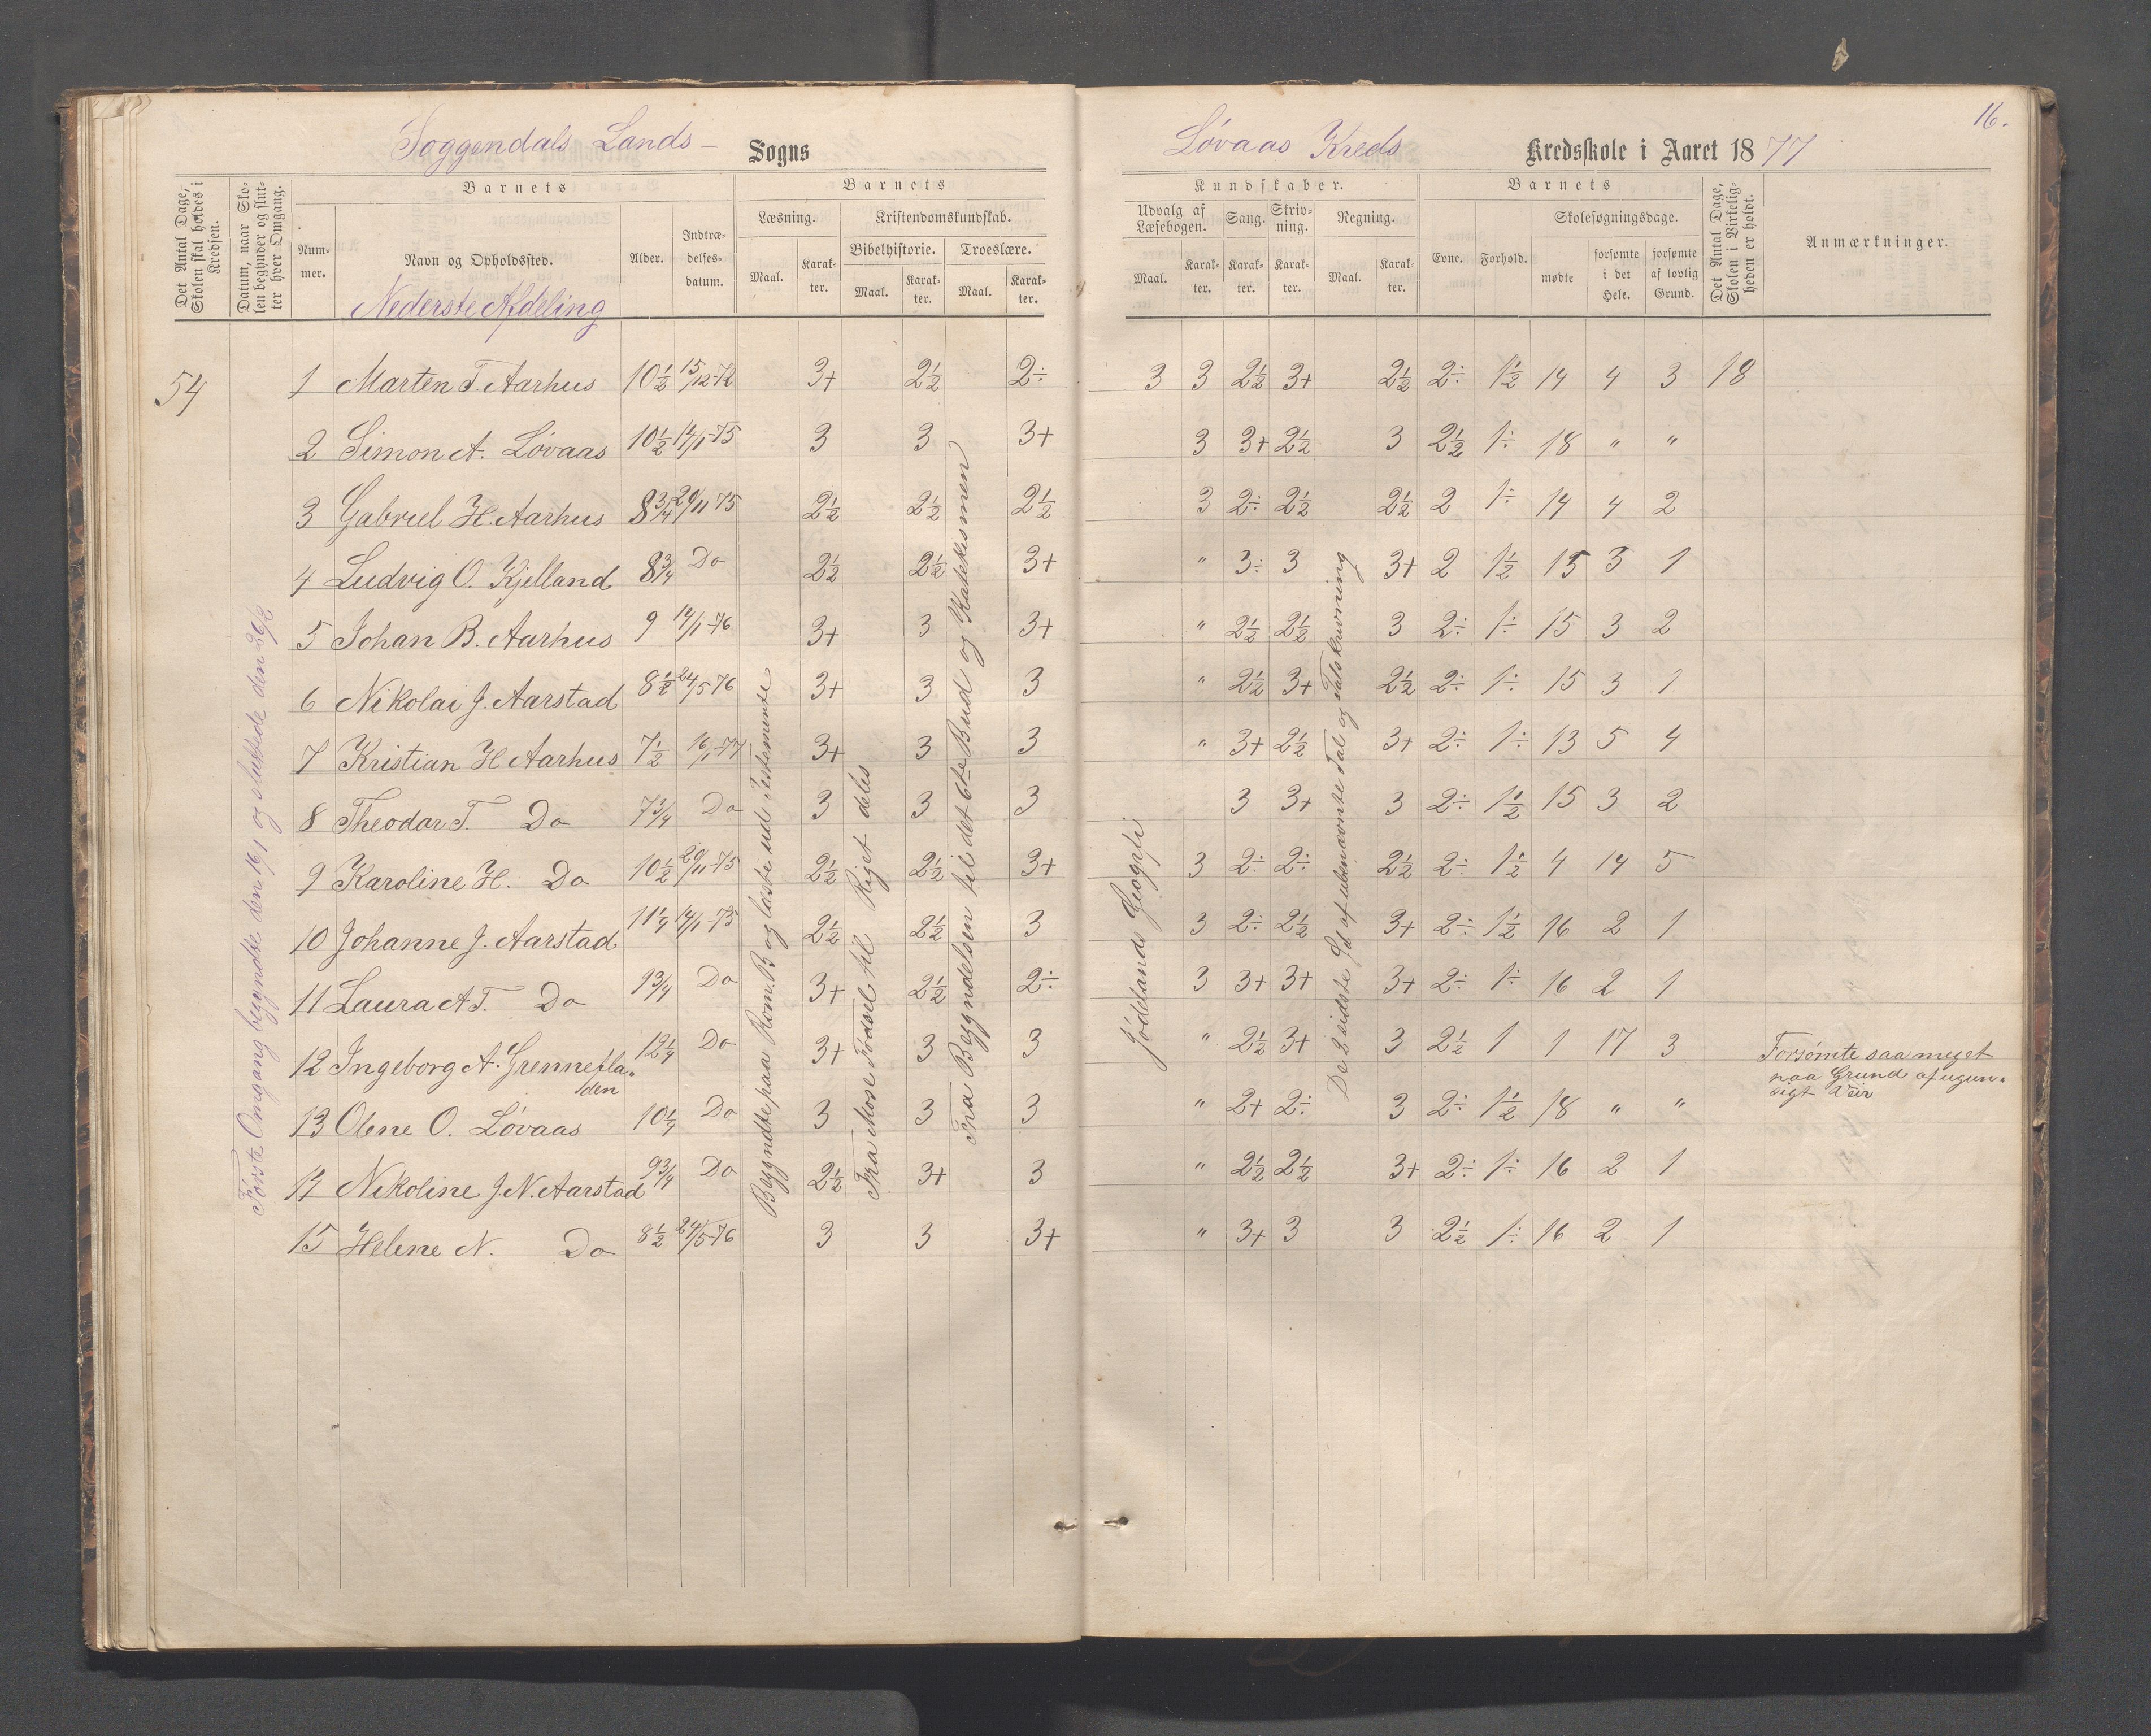 16.
Soggendals Lands- Sogns
Løvaas Kreds Kredsskole i Aaret 1877
Det Antal Dage, Skolen skal holdes i Kredsen.
Datum, naar Skolen begynder og slutter hver Omgang.
Barnets
Nummer.
Navn og Opholdssted.
Alder.
Indtrædelsesdatum.
Barnets
Læsning.
Maal.
Karakter.
Kristendomskundskab.
Bibelhistorie.
Maal.
Karakter.
Troeslære.
Maal.
Karakter.
Kundskaber.
Udvalg af Læsebogen.
Maal.
Karakter.
Sang.
Karakter.
Skrivning.
Karakter.
Regning.
Maal.
Karakter.
Barnets
Evne.
Forhold.
Skolesøgningsdage.
mødte
forsømte i det Hele.
forsømte af lovlig Grund.
Det Antal Dage, Skolen i Virkeligheden er holdt.
Anmærkninger.
Nederste Afdeling
54 1 Marten T. Aarhus 10½ 15/12-72 3+ 2½ 2÷ 3 3 2½ 3+ 2½ 2÷ 1½ 14 4 3 18
2 Simon A. Løvaas 10½ 14/1-75 3 3 3+ 3 3+ 2½ 3 2½ 1÷ 18 " "
3 Gabriel H. Aarhus 8¾ 29/11 75 2½ 2½ 2½ 3 2÷ 2½ 2½ 2 1÷ 14 4 2
4 Ludvig O. Kjelland 8¾ Do 2½ 2½ 3+ " 3÷ 3 3+ 2 1½ 15 3 1
5 Johan B. Aarhus 9 14/1-76 3+ 3 3+ " 2½ 2½ 3 2÷ 1÷ 15 3 2
6 Nikolai J. Aarstad 8½ 24/5 76 3+ 3 3 " 2½ 3+ 2½ 2÷ 1÷ 15 3 1
7 Kristian H Aarhus 7½ 16/1-77 3+ 3 3 " 3+ 2½ 3+ 2÷ 1÷ 13 5 4
8 Theodor T. Do 7¾ Do 3 3 3 3 3+ 3 2÷ 1½ 15 3 2
9 Karoline H. Do 10½ 29/11-75 2½ 2½ 3+ 3 2÷ 2÷ 2½ 2÷ 1½ 4 14 5
10 Johanne J. Aarstad 11¼ 14/1-75 2½ 2½ 3 3 2÷ 2½ 3+ 2÷ 1½ 16 2 1
11 Laura A T. Do 9¾ Do 3+ 2½ 2÷ 3 3+ 3+ 3+ 2÷ 1÷ 16 2 1
12 Ingeborg A. Grennefla- 12¼ Do 3+ 3 3 " 2½ 3+ 3 2½ 1 1 17 3 Forsømte saa meget
den
paa Grund af ugun-
sigt Veir
13 Olene O. Løvaas 10¼ Do 3 3 3 " 2+ 2÷ 3 2÷ 1½ 18 " "
14 Nikoline J. N. Aarstad 9¾ Do 2½ 3+ 3 " 2½ 2½ 3+ 2÷ 1÷ 16 2 1
15 Helene N. Do 8½ 24/5-76 3 3 3+ " 3+ 3 3 2½ 1÷ 16 2 1
Første Omgang begyndte den 16/1 og sluttede den 26/2
Begyndte paa Rom. B og læste ud Testemente
Fra Mose Fødsel til Riget deles
Fra Begyndelsen til det 6te Bud og Katekismen
Jødelands Geogrfi
De 2 sidste Gd af ubenævnte Tal og Talskrivning